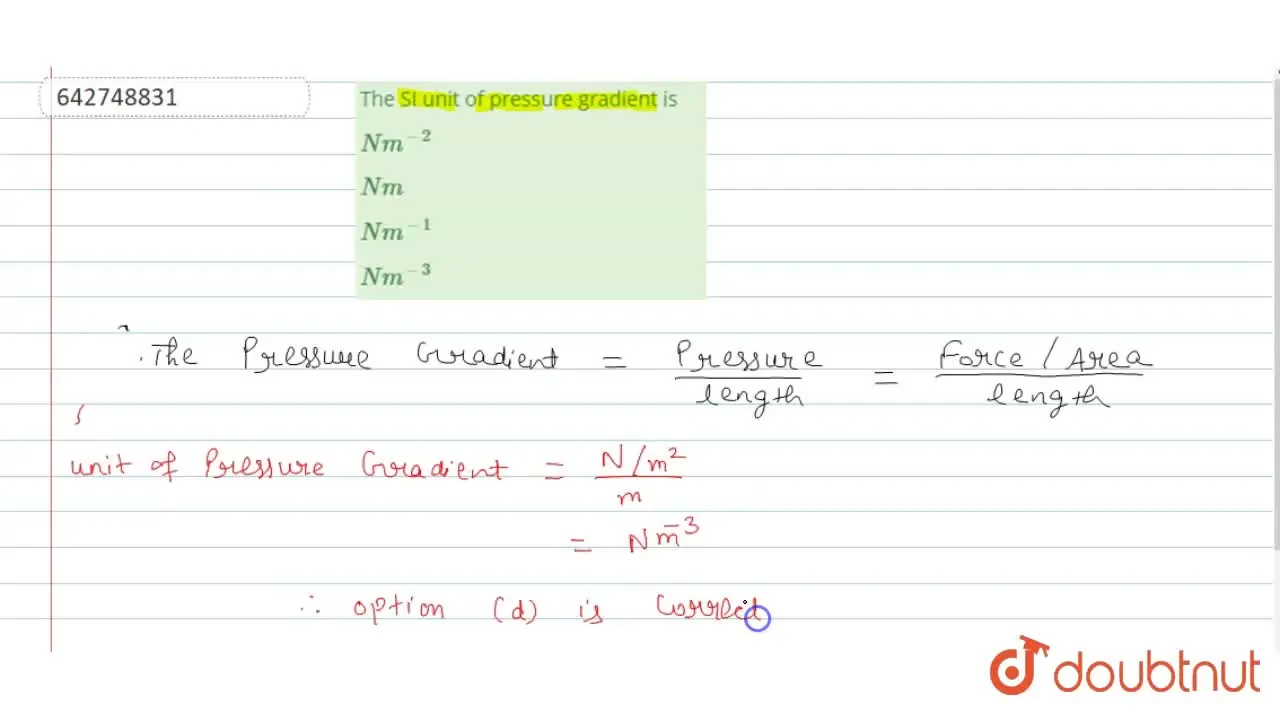 642748831
The SI unit of pressure gradient is
Nm⁻²
Nm
Nm⁻¹
Nm⁻³
The Pressure Gradient = Pressure / length = Force / Area / length
unit of Pressure Gradient = N/m² / m
= Nm⁻³
∴ option (d) is correct
doubtnut